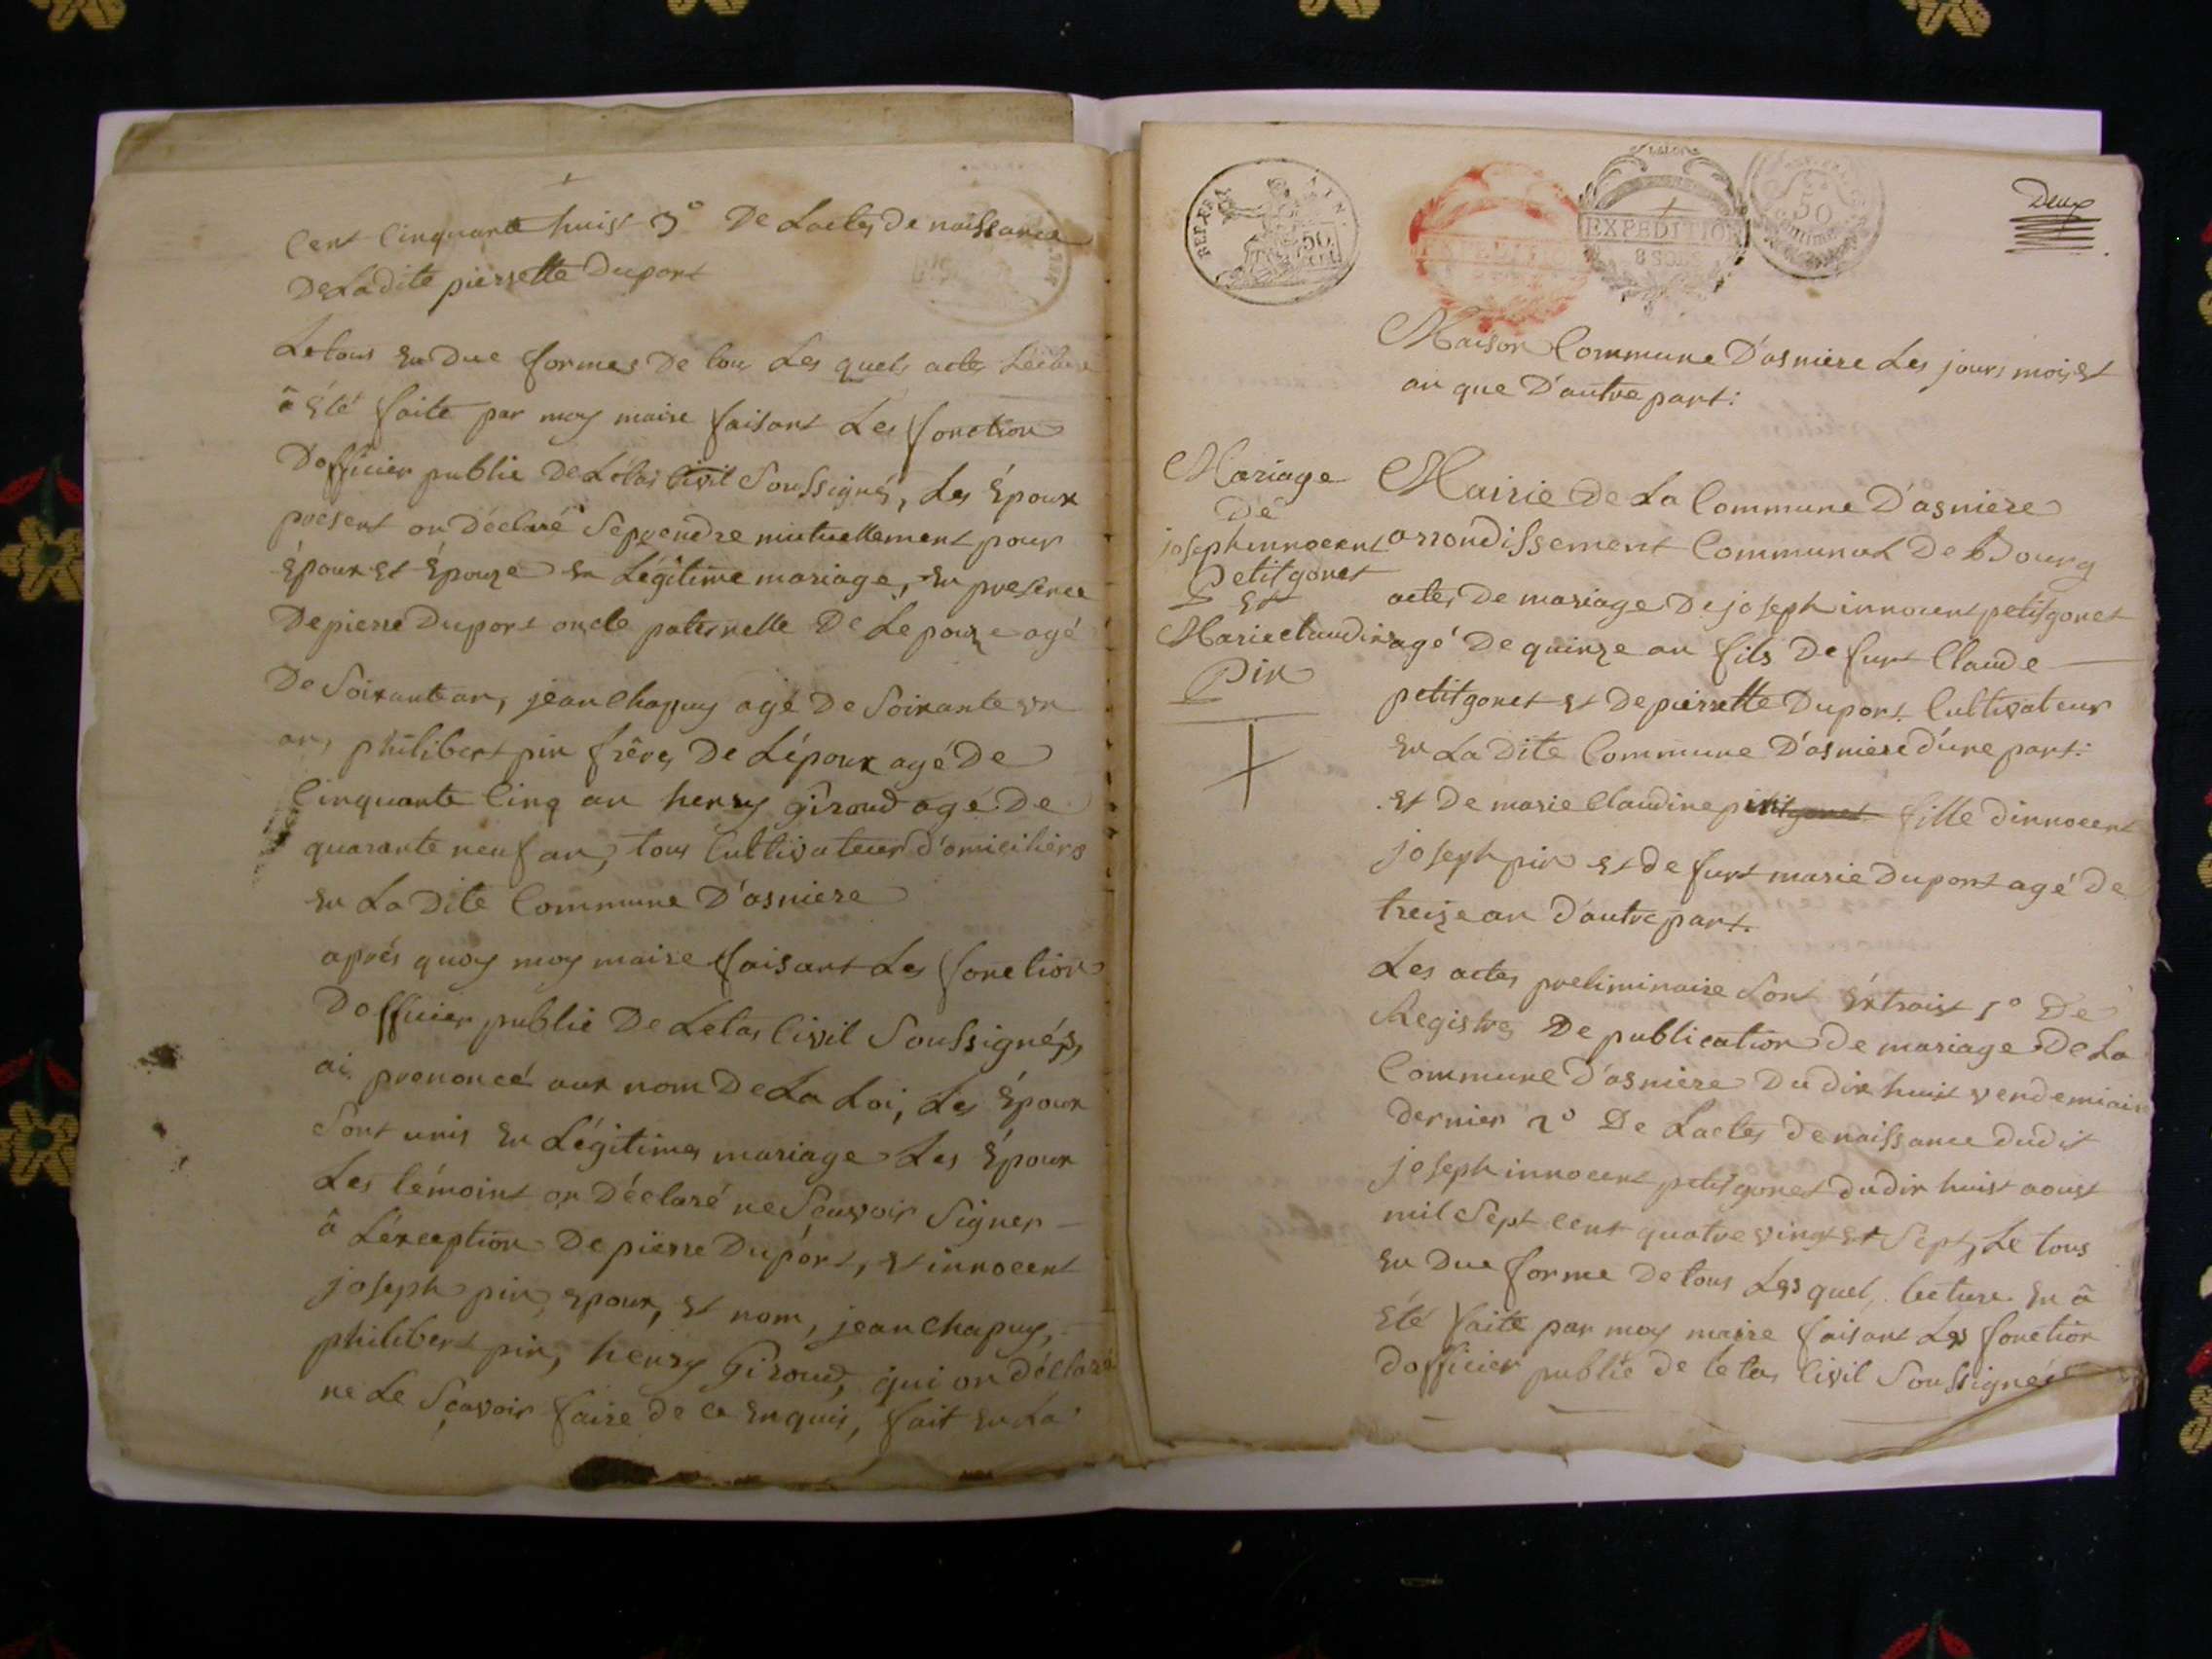 Cent Cinquante huist 3° De Lactes de naissance
De Ladite pierrette Duport
Le tous en Due formes De tous Les quels actes Lecture
â Été faite par moy maire faisant Les fonction
D'officier public De Létas Civil Soussignés, Les Époux
présent on Déclaré Seprendre mutuellement pour
Époux et Épouze en Légitime mariage, en presence
De pierre Duport oncle paternelle De Lepouze agé
De Soixante an, jean Chapuy agé De Soixante un
an, philibert pin frêre, De Lépoux agé De
Cinquante Cinq an henry Giroud agé De
quarante neuf an, tous Cultivateur d'omiciliers
en La Dite Commune D'asniere
aprés quoy moy maire faisant Les fonction
Dofficier public De Letas Civil Soussignés,
ai prononcé aux nom De La Loi, Les Époux
Sont unis en Légitimes mariage Les Époux
Les témoint on Déclaré ne Sçavoir Signer
â Léxception De pierre Duport, et innocent
joseph pin, epoux, et nom, jean Chapuy,
philibert pin, henry Giroud, qui on déclaré
ne Le Sçavoir faire de ce enquis, fait en La
REP. FRA.
50
CEN.
EXPEDITION
EXPEDITION
8 SOLS
50
Centimes
Deux
Maison Commune D'asniere Les jours mois et
an que D'autre part:
Mariage
De
joseph innocent
Petitgonet
Et
Marie claudine
Pin
Mairie De La Commune D'asniere
arrondissement Communal De Bourg
actes De mariage De joseph innocent petitgonet
agé De quinze an fils De furt Claude
petitgonet et De pierrette Duport Cultivateur
en La Dite Commune D'asniere d'une part:
et De marie Claudine pin fille dinnocent
joseph pin et de furt marie Duport agé De
treize an D'autre part.
Les actes preliminaire Sont Éxtraist 1° De
Registres De publication De mariage De La
Commune D'asniere Du dix huit vendemiaire
dernier 2° De Lactes de naissance dudit
joseph innocent petitgonet du dix huist aoust
mil Sept cent quatre vingt et Sept, Le tous
en Due forme De tous Les quel, lecture en â
Été faite par moy maire faisant Les fonction
dofficier public de letas Civil Soussignés